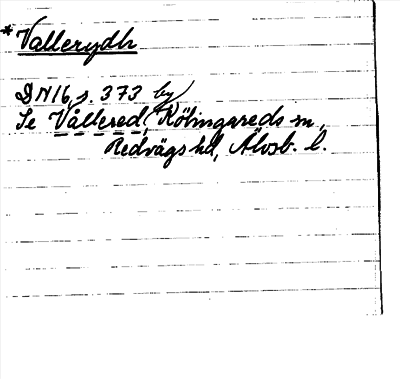 * Vallerydh
DN16, s. 373 by
Se Vållered, Kölingareds sn,
Redvägs hd, Älvsb. l.